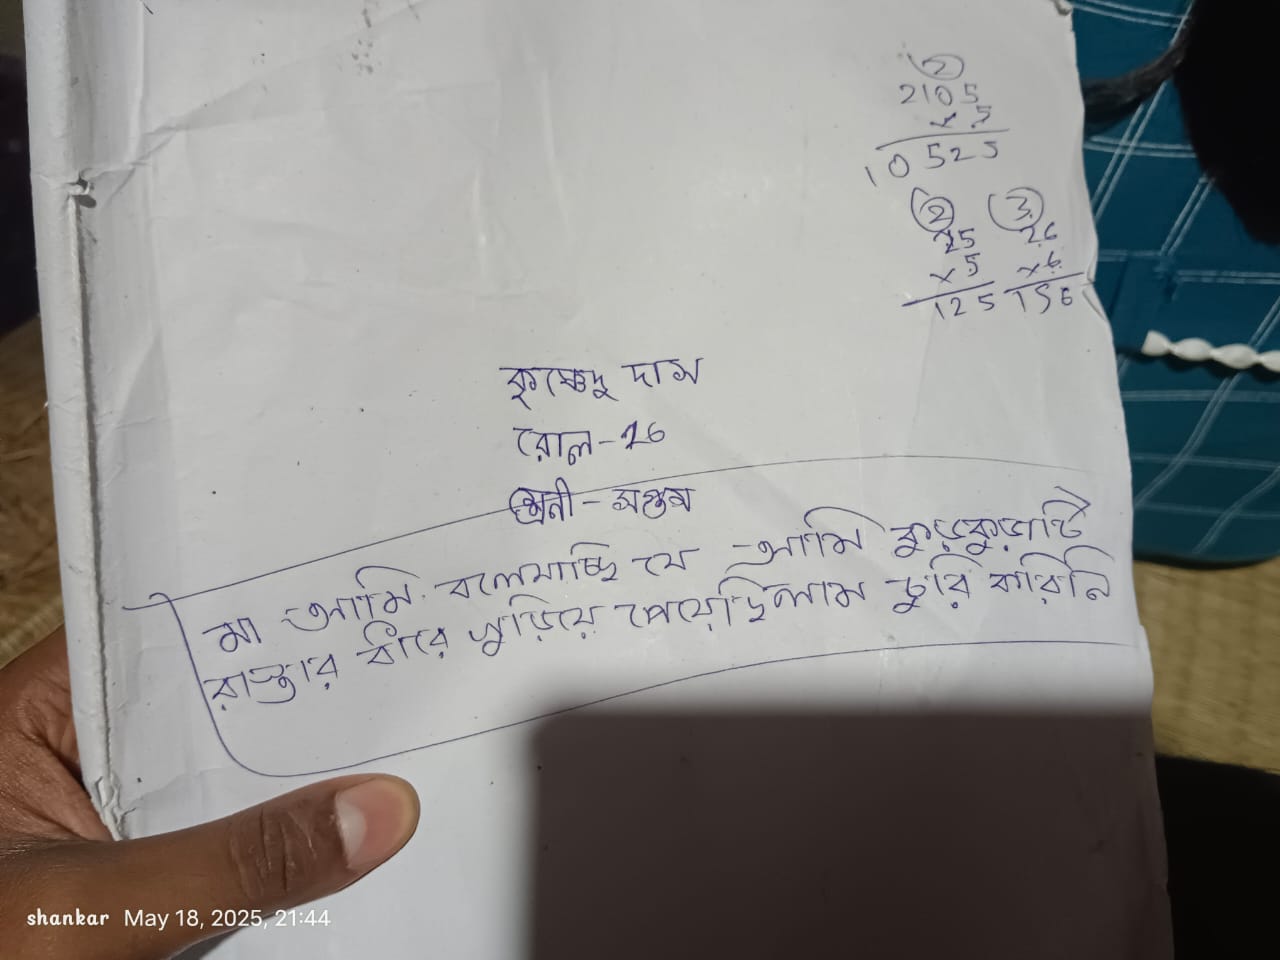 2
2105
× 5
10525
2 3
25 26
×5 ×6
125 156
কৃষ্ণেন্দু দাস
রোল-26
শ্রেনী- সপ্তম
মা আমি বলেযাচ্ছি যে আমি কুড়কুড়াটি
রাস্তার ধারে খুড়িয়ে পেয়েছিলাম চুরি করিনি
shankar May 18, 2025, 21:44